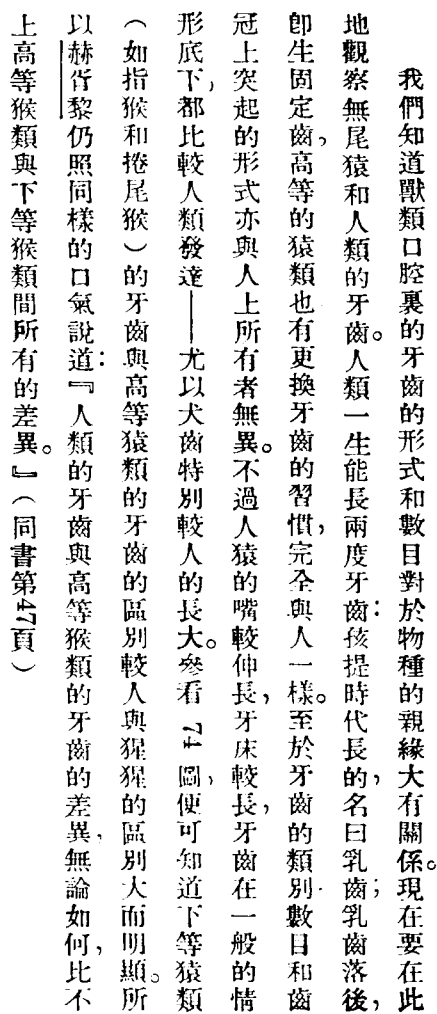 我們知道獸類口腔裏的牙齒的形式和數目對於物種的親緣大有關係。現在要在此
地觀察無尾猿和人類的牙齒。人類一生能長兩度牙齒：孩提時代長的，名曰乳齒；乳齒落後，
卽生固定齒，高等的猿類也有更換牙齒的習慣，完全與人一樣。至於牙齒的類別數目和齒
冠上突起的形式亦與人上所有者無異。不過人猿的嘴較伸長，牙床較長，牙齒在一般的情
形底下，都比較人類發達——尤以犬齒特別較人的長大。參看 74 圖，便可知道下等猿類
（如指猴和捲尾猴）的牙齒與高等猿類的牙齒的區別較人與猩猩的區別大而明顯。所
以赫胥黎仍照同樣的口氣說道：『人類的牙齒與高等猴類的牙齒的差異，無論如何，比不
上高等猴類與下等猴類間所有的差異。』（同書第47頁）